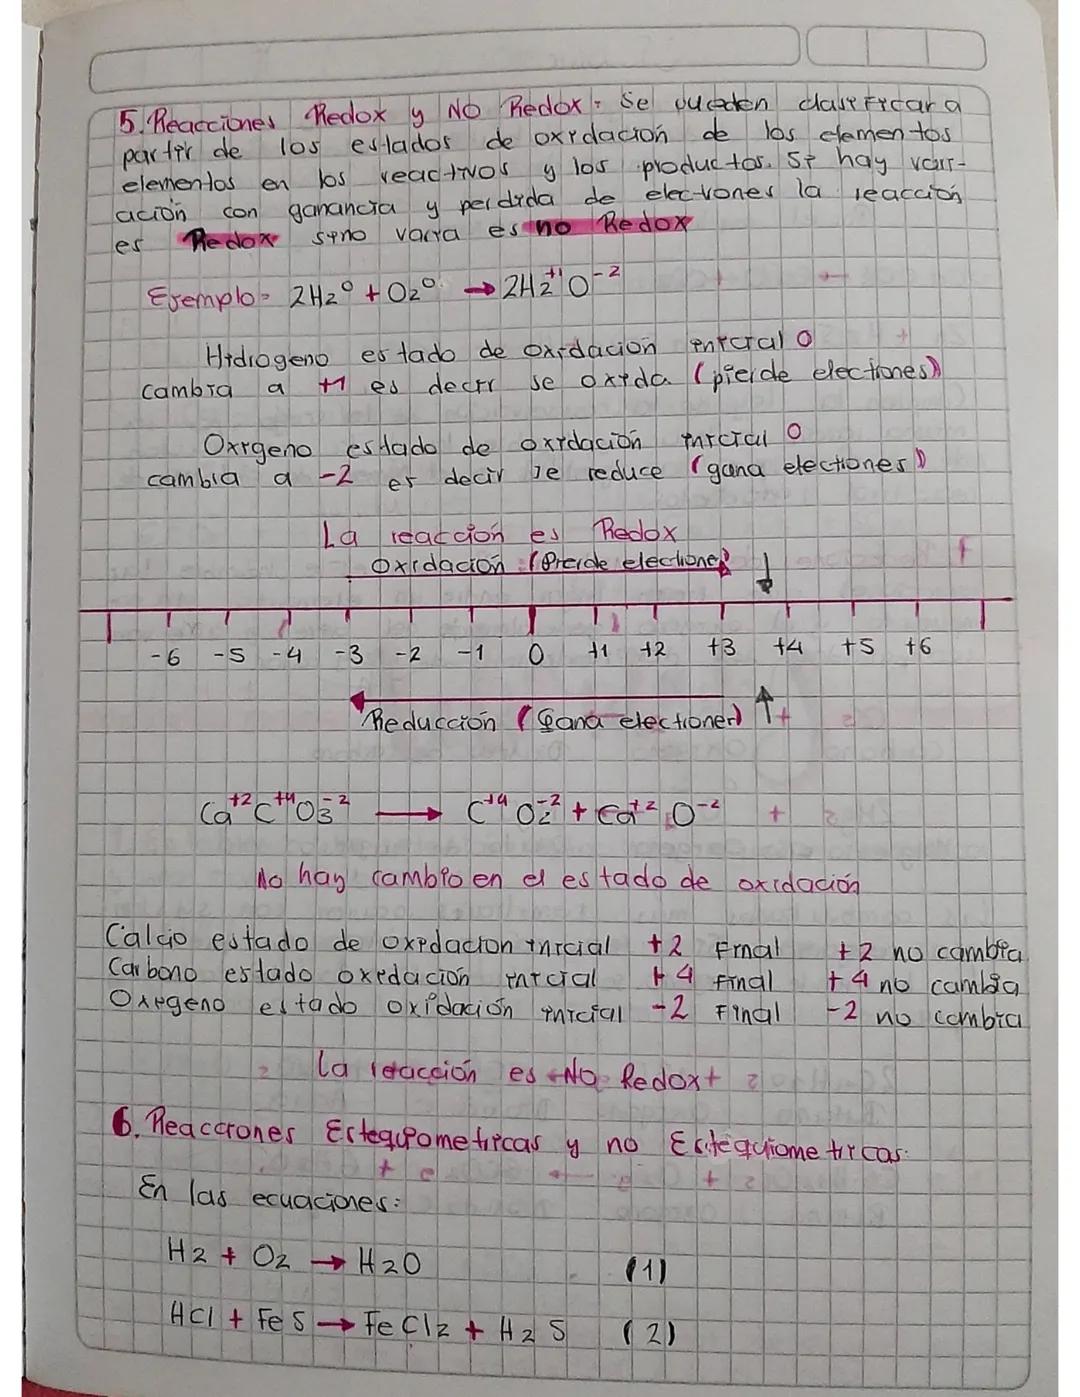 5. Reacciones Redox y NO Redox: Se pueden clasificar a
partir de los estados de oxidación de los elementos
elementos en los reactivos y los productos. Si hay vari-
ación con ganancia y perdida de electrones la reacción
es Redox sino varia es no Redox
Ejemplo= 2H2⁰ + O2⁰ → 2H2⁺¹O⁻²
Hidrogeno estado de oxidación inicial 0
cambia a +1 es decir se oxida (pierde electrones)
Oxigeno estado de oxidación inicial 0
cambia a -2 es decir se reduce (gana electrones)
La reacción es Redox
Oxidación (Pierde electrones) ↓
-6 -5 -4 -3 -2 -1 0 +1 +2 +3 +4 +5 +6
Reducción (Gana electrones) ↑
Ca⁺²C⁺⁴O3⁻² → C⁺⁴O2⁻² + Ca⁺²O⁻²
No hay cambio en el estado de oxidación
Calcio estado de oxidacion inicial +2 Final +2 no cambia
Carbono estado oxidación inicial +4 final +4 no cambia
Oxigeno estado oxidación inicial -2 Final -2 no cambia
La reacción es No Redox
6. Reacciones Estequiometricas y no Estequiometricas:
En las ecuaciones:
H2 + O2 → H2O (1)
HCl + FeS → FeCl2 + H2S (2)